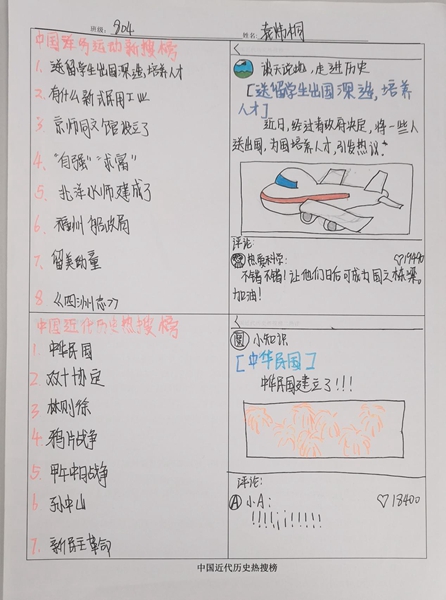 班级: 904
姓名:
中国洋务运动新搜榜
1. 送留学生出国深造,培养人才
2. 有什么新式民用工业
3. 京师同文馆设立了
4. “自强”“求富”
5. 北洋水师建成了
6. 福州船政局
7. 留美幼童
8 《四洲志》
谈天说地,走进历史
[送留学生出国深造,培养人才]
近日,经过省政府决定,将一些人
送出国,为国培养人才,引发热议。
评论:
不错不错!让他们日后可成为国之栋梁,
加油!
中国近代历史热搜榜
1. 中华民国
2 双十协定
3. 林则徐
4. 鸦片战争
5. 甲午中日战争
6 孙中山
7. 新民主革命
小知识
[中华民国]
中华民国建立了!!!
评论:
A 小A: ♡13400
!!!!¡¡!!!!!
中国近代历史热搜榜